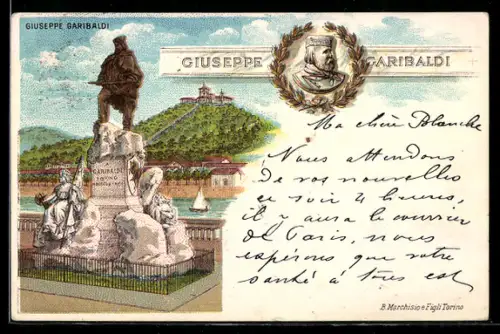 GIUSEPPE GARIBALDI
GIUSEPPE GARIBALDI
A
GARIBALDI
TORINO
Ma chère Blanche
Nous attendons
de vos nouvelles
ce soir 4 heures,
il y aura le courrier
de Paris, nous
espérons que votre
santé à tous est
B. Marchisio e Figli Torino